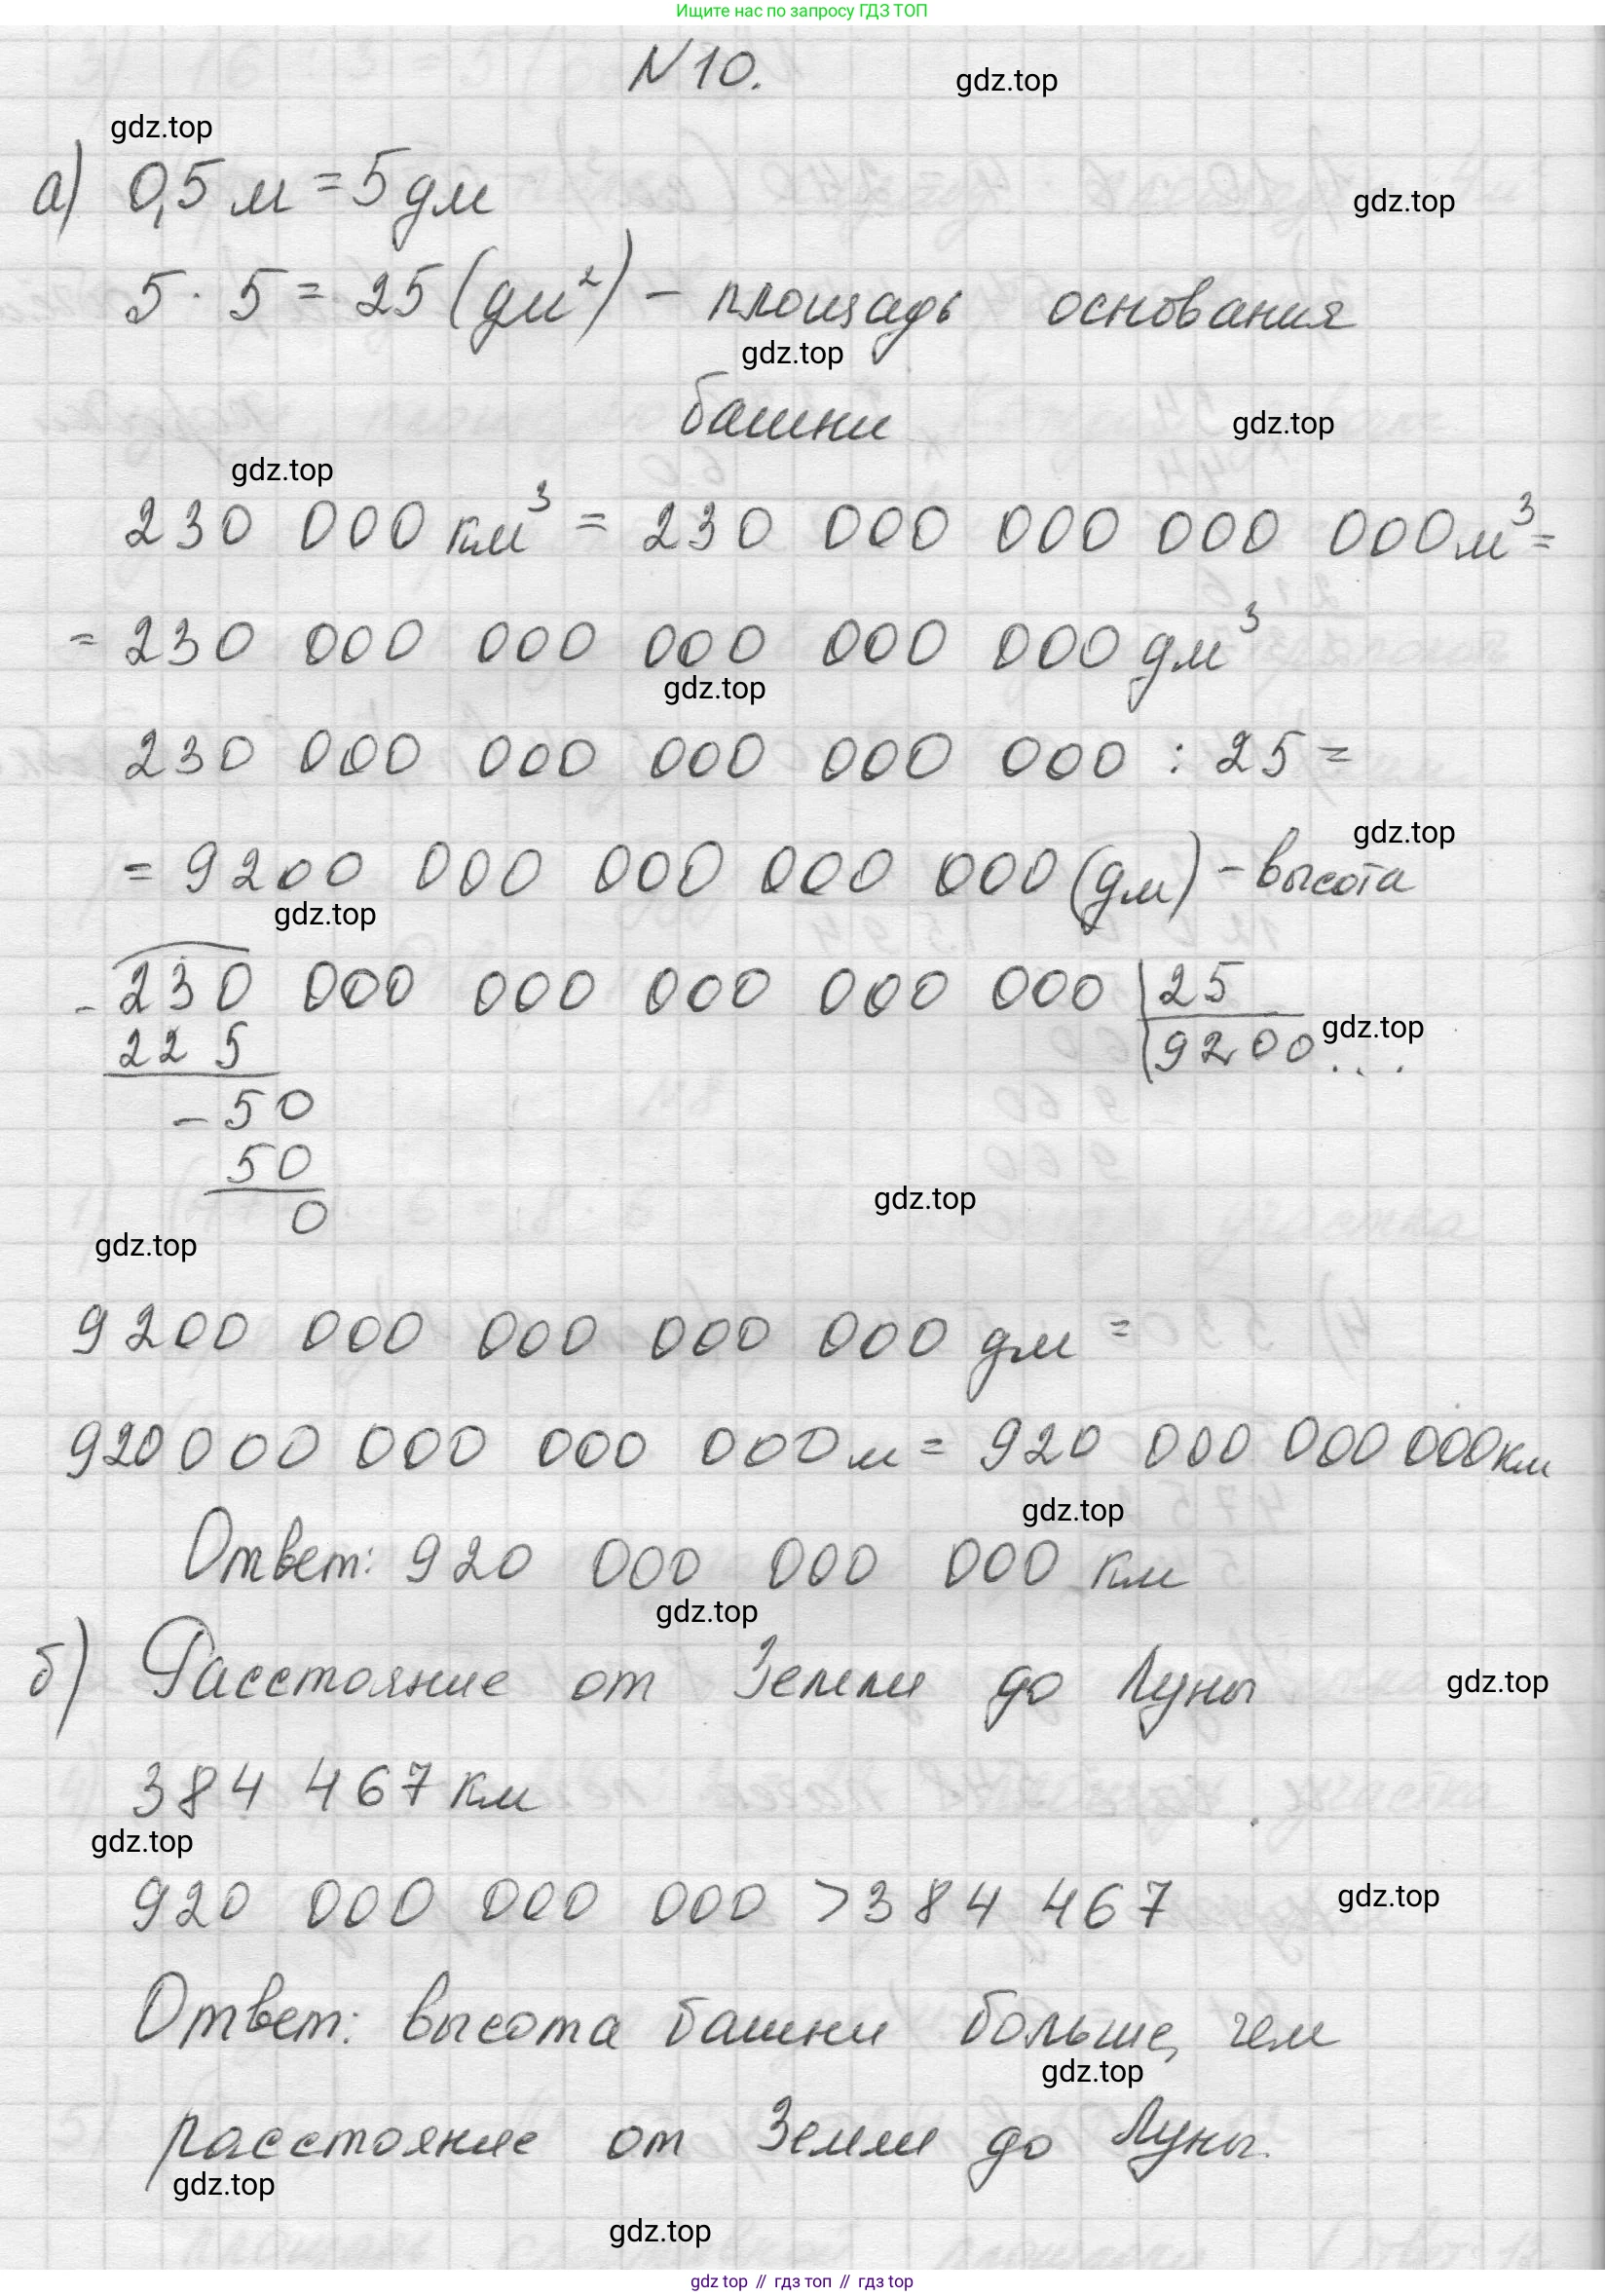 Ищите нас по запросу ГДЗ ТОП
N 10.
gdz.top
gdz.top
а) 0,5 м = 5 дм
gdz.top
5 · 5 = 25 (дм²) – площадь основания
gdz.top
башни
gdz.top
gdz.top
230 000 км³ = 230 000 000 000 000 м³ =
= 230 000 000 000 000 000 дм³
gdz.top
230 000 000 000 000 000 : 25 =
gdz.top
= 9200 000 000 000 000 (дм) – высота
gdz.top
- 230 000 000 000 000 000 | 25
225 | 9200...
gdz.top
- 50
50
0
gdz.top
gdz.top
9200 000 000 000 000 дм =
920000 000 000 000 м = 920 000 000 000 км
gdz.top
Ответ: 920 000 000 000 км
gdz.top
б) Расстояние от Земли до Луны
gdz.top
384 467 км
gdz.top
920 000 000 000 > 384 467
gdz.top
Ответ: высота башни больше, чем
gdz.top
расстояние от Земли до Луны.
gdz.top
gdz.top
gdz top // гдз топ // gdz top